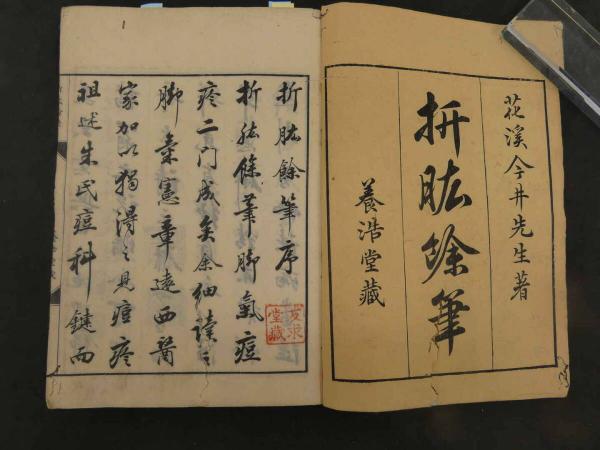 花溪今井先生著
折肱餘筆
養浩堂藏
折肱餘筆序
折肱餘筆脚氣痘
疹二門成矣余細讀之
脚氣憲章遠西醫
家加以獨得之見痘疹
祖述朱氏痘科鍵而
堂藏